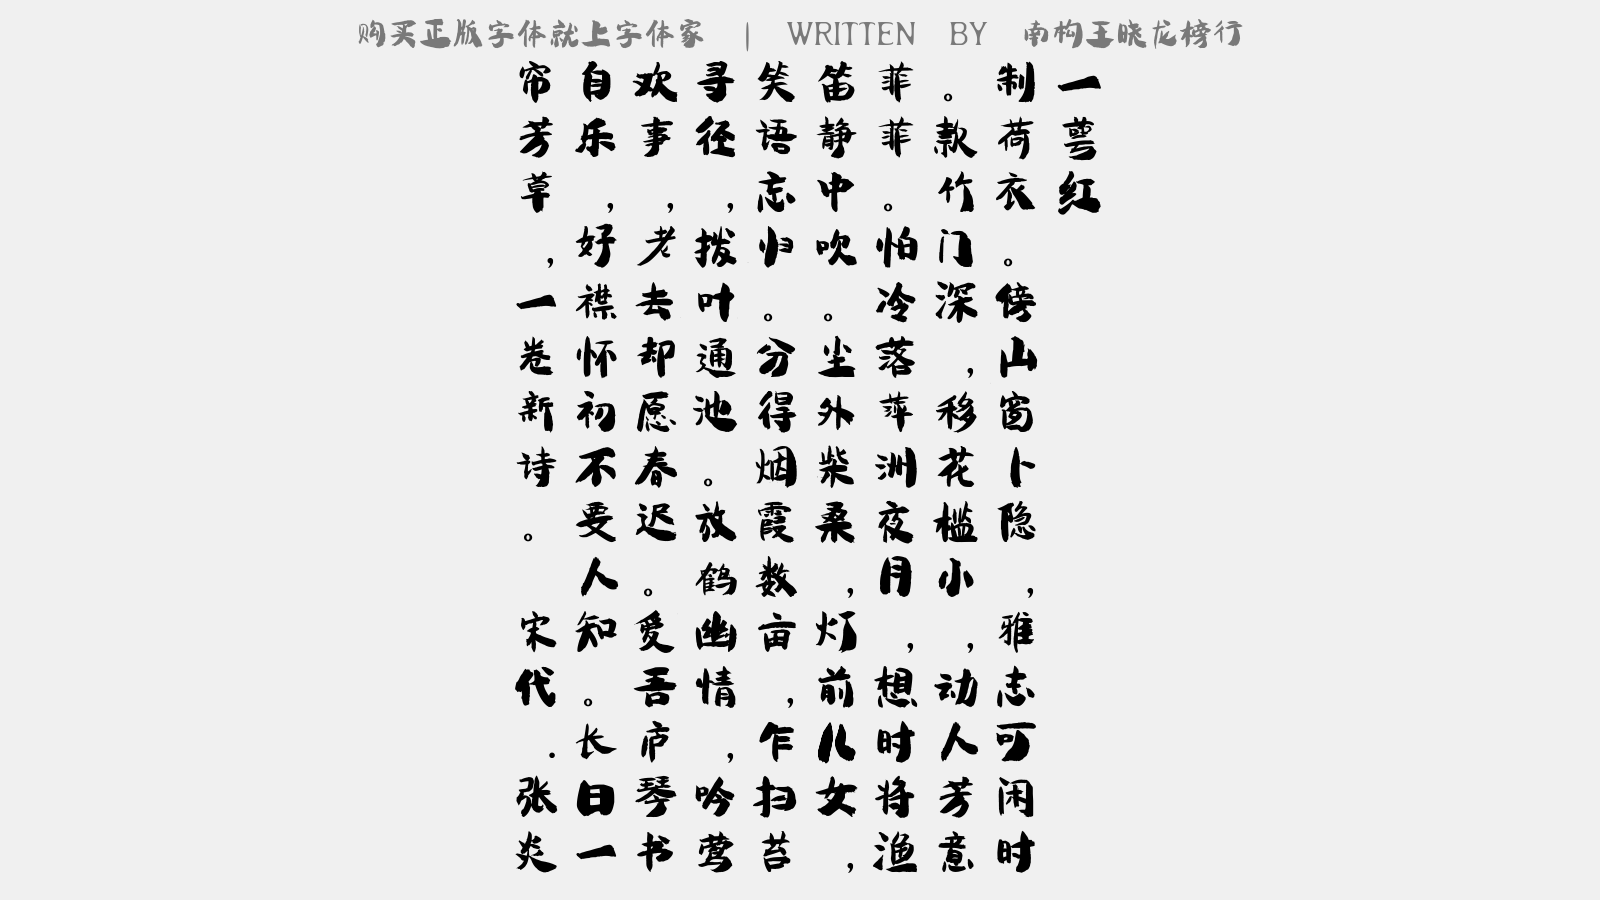 购买正版字体就上字体家 | WRITTEN BY 南构王晓龙榜行
一萼红
制荷衣。傍山窗卜隐，雅志可闲时
。款竹门深，移花槛小，动人芳意
菲菲。怕冷落萍洲夜月，想时将渔
笛静中吹。尘外柴桑，灯前儿女，
笑语忘归。分得烟霞数亩，乍扫苔
寻径，拨叶通池。放鹤幽情，吟莺
欢事，老去却愿春迟。爱吾庐琴书
自乐，好襟怀初不要人知。长日一
帘芳草，一卷新诗。 宋代.张炎